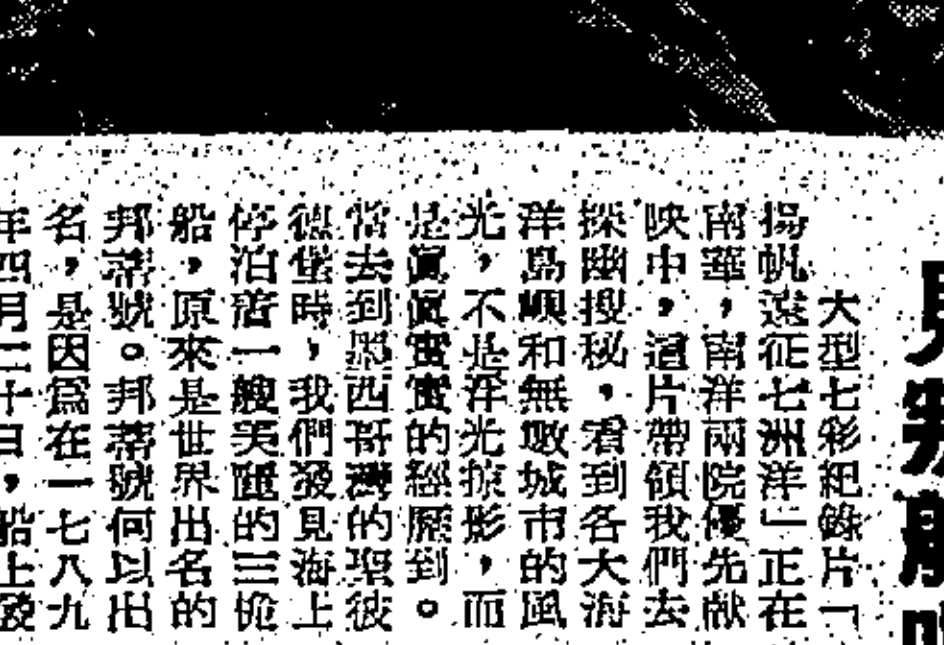 大型七彩紀錄片「
揚帆遠征七洲洋」正在
南華,南洋兩院優先献
映中,這片帶領我們去
探幽搜秘,看到各大海
洋島嶼和無數城市的風
光,不是浮光掠影,而
是眞眞實實的經歷到。
當去到墨西哥灣的聖彼
德堡時,我們發見海上
停泊着一艘美麗的三桅
船,原來是世界出名的
邦蒂號。邦蒂號何以出
名,是因爲在一七八九
年四月二十日,船上發